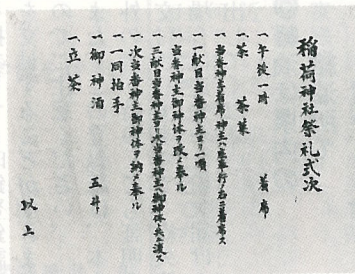 稲荷神社祭礼式次
一、午後一時 着席
一、茶 茶菓
一、当番神主着席神主ハ年番行ノ右ニ着席ス
一、一献目当番神主ヨリ一順
一、当番神主御神体ヲ改メ奉ル
一、三献目当番神主ヨリ次当番神主ヘ御神体ヲ相渡ス
一、次当番神主御神体ヲ納メ奉ル
一、一同拍手
一、御神酒 五升
一、立茶
以上